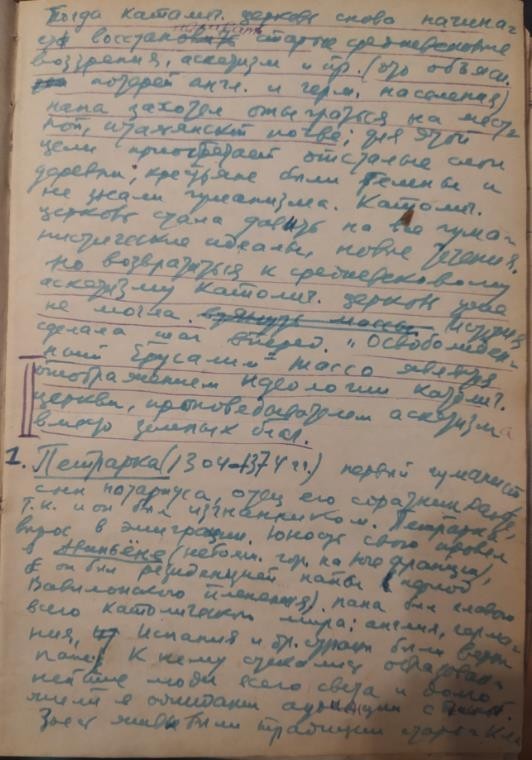 Тогда католич. церковь снова начина-
ет восстанавливать старые средневековые
воззрения, аскетизм и пр. (это объясн.
потерей англ. и герм. населения)
папа захотел отыграться на мест-
ной, итальянской почве; для этой
цели приобретает отсталые слои
деревни, крестьяне были темны и
не знали гуманизма. Католич.
церковь стала давить на все гума-
нистические идеалы, новые течения.
Но возвратиться к средневековому
аскетизму католич. церковь уже
не могла. История
сделала шаг вперёд. "Освобожден-
ный Ерусалим" Тассо является
отображением идеологии католич.
церкви, проповедывателем аскетизма
вместо земных благ.
1. Петрарка (1304-1374 гг.) первый гуманист
сын нотариуса, отец его соратник Данте,
т.к. и он был изгнанником. Петрарка
вырос в эмиграции. Юность свою провёл
в Авиньёне (небольш. гор. на юге Франции),
он был резиденцией папы (период
Вавилонского пленения). Папа был главою
всего католическ. мира: Англия, Герма-
ния, Испания и др. страны были верны
папе. К нему стекались образован-
нейшие люди всего света и долго
жили в ожидании аудиенции с папой.
Здесь живы были традиции